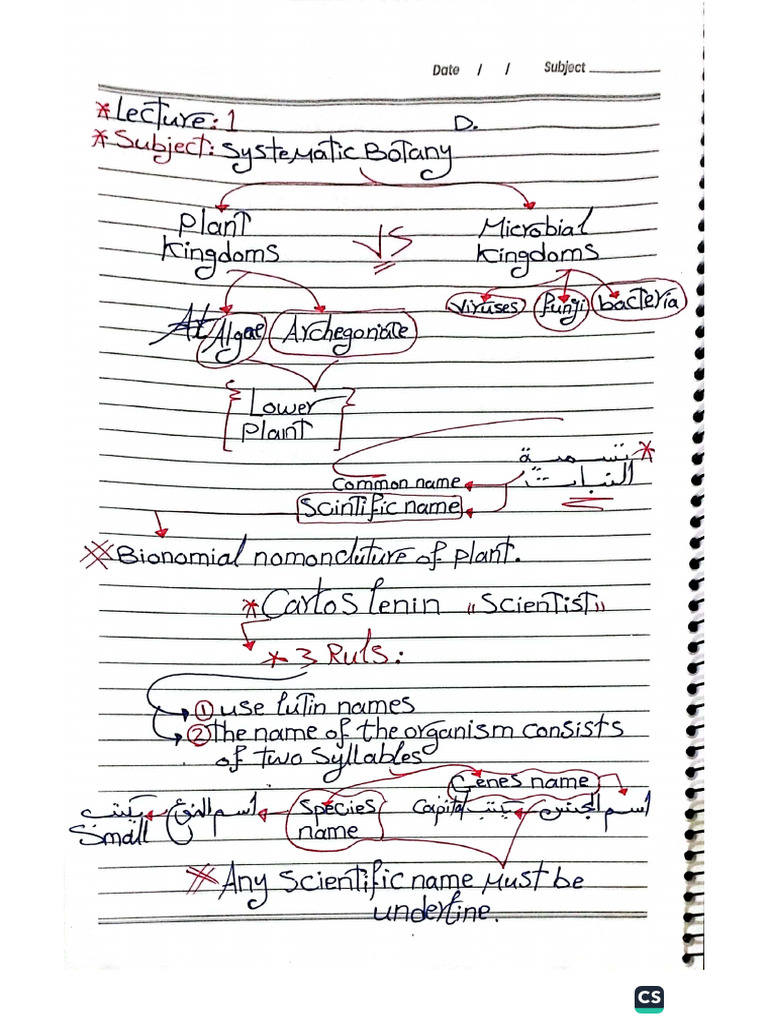 Date / / Subject
*Lecture: 1 D.
*Subject: Systematic Botany
Plant Kingdoms VS Microbial Kingdoms
viruses fungi bacteria
Algae Archegoniate
Lower Plant
تسمية النبات *
Common name
Scintific name
Bionomial nomoncluture of plant.
*Carlos lenin "Scientist"
* 3 Ruls:
① use lutin names
② the name of the organism consists
of two syllables
Genes name
اسم الجنس يكتب Capital
Species name
اسم النوع يكتب Small
Any Scientific name Must be
underline.
CS